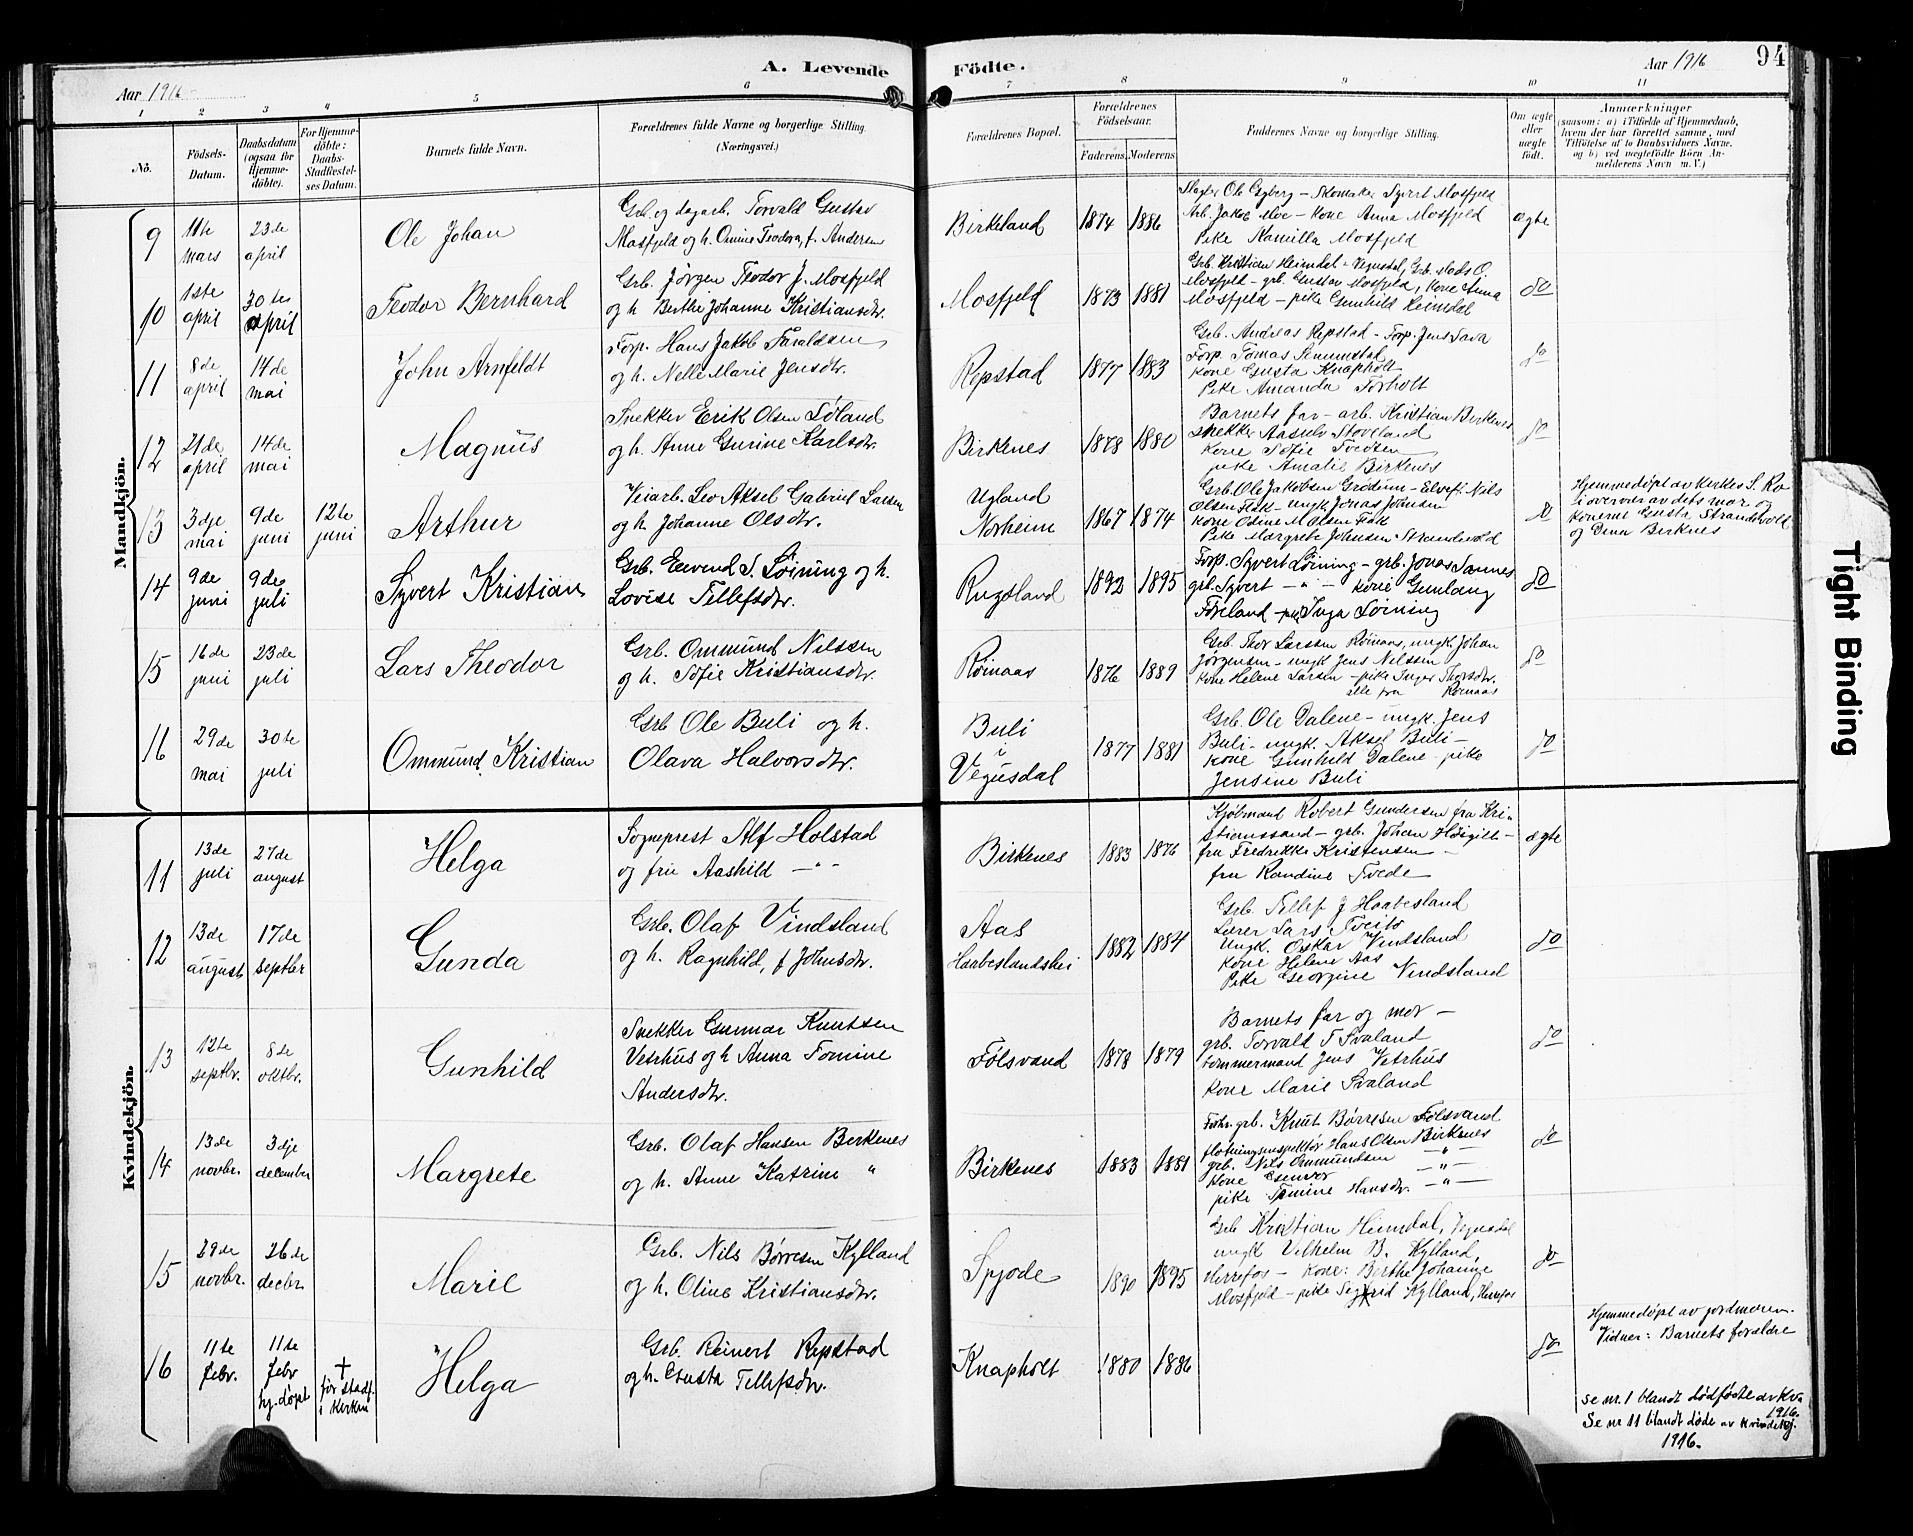 A. Levende Födte.
94
Aar 1916
Aar 1916
1 2 3 4 5 6 7 8 9 10 11
No.
Födsels-
Datum.
Daabsdatum
(ogsaa for
Hjemme-
döbte).
For Hjemme-
döbte:
Daabs-
Stadfæstel-
ses Datum.
Barnets fulde Navn.
Forældrenes fulde Navne og borgerlige Stilling.
(Næringsvei.)
Forældrenes Bopæl.
Forældrenes
Födselsaar.
Faderens. Moderens.
Faddernes Navne og borgerlige Stilling.
Om ægte
eller
uægte
födt.
Anmærkninger
(saasom: a) i Tilfælde af Hjemmedaab,
hvem der har forrettet samme, med
Tilföielse af to Daabsvidners Navne,
og b) ved uegtefödte Börn An-
melderens Navn m. V.)
Mandkjön.
9
11te
mars
23de
april
Ole Johan
Grb. og dagarb. Torvald Gustav
Mosfjeld og h. Omine Teodora, f. Andersen
Birkeland
1874 1886
Ole Egeberg – Skomaker Syvert Mosfjeld
Arb. Jakob Moe – Kone Anna Mosfjeld
Pike Kamilla Mosfjeld
ægte
10
1ste
april
30te
april
Teodor Bernhard
Grb. Jörgen Teodor J. Mosfjeld
og h. Berthe Johanne Kristiansdtr.
Mosfjeld
1873 1881
Grb. Kristian Heimdal – Vegusdal, Grb. Mads O.
Mosfjeld – grb. Gustav Mosfjeld, Kone Anna
Mosfjeld – pike Gunhild Heimdal
do
11
8de
april
14de
mai
John Arnfeldt
Forp. Hans Jakob Faraldsen
og h. Nelle Marie Jensdtr.
Repstad
1877 1883
Grb. Andreas Repstad – Forp. Jens Sava
Forp. Tomas Senumstad
Kone Gusta Knapholt
Pike Amanda Torholt
do
12
21de
april
14de
mai
Magnus
Snekker Erik Olsen Töland
og h. Anne Gurine Karlsdtr.
Birkenes
1878 1880
Barnets far – arb. Kristian Birkenes
Snekker Aasulv Stoveland
Kone Sofie Tveiten
pike Amalie Birkenes
do
13
3dje
mai
9de
juni
12te
juni
Arthur
Veiarb. Leo Aksel Gabriel Larsen
og h. Johanne Olsdtr.
Ugland
Norheim
1867 1874
Grb. Ole Jakobsen Grödum – Elvefl. Nils
Olsen Flak – ungk. Jonas Johnsen
Kone Osine M. Olsen Flak
Pike Margrete Johnsen Strandevold
do
Hjemmedöpt av kirkes. S. Ro
i overvær av dets mor og
konerne Gustr. Strandevold
og Dina Birknes
14
9de
juni
9de
juli
Syvert Kristian
Grb. Eivend S. Löining og h.
Lovise Tellefsdtr.
Rugsland
1892 1895
Forp. Syvert Löining – grb. Jonas Sannes
grb. Syvert – " – Kone Gunlaug
Föreland – pike Inga Löining
do
15
16de
juni
23de
juli
Lars Theodor
Grb. Ommund Nilssen
og h. Sofie Kristiansdtr.
Röinaas
1876 1889
Grb. Thor Larssen Röinaas, ungk. Johan
Jörgensen – ungk. Jens Nilssen
Kone Helene Larsen – pike Inger Thorsdtr.
alle fra Röinaas
do
16
29de
mai
30te
juli
Ommund Kristian
Grb. Ole Buli og h.
Olava Halvorsdtr.
Buli
i
Vegusdal
1877 1881
Grb. Ole Dalene – ungk. Jens
Buli – ungk. Aksel Buli –
Kone Gunhild Dalene – pike
Jensine Buli
do
Kvindekjön.
11
13de
juli
27de
august
Helga
Sogneprest Alf Holstad
og frue Aashild – " –
Birkenes
1883 1876
Kjöbmand Robert Gundersen fra Kri-
stianssand – grb. Johan Höigilt –
fru Fredrikke Kristensen –
fru Randine Tvede
ægte
12
13de
august
17de
septbr
Gunda
Grb. Olaf Vindsland
og h. Ragnhild, f. Johnsdtr.
Aas
Haabeslandshei
1882 1884
Grb. Tellef J Haabesland
Lærer Lars Tveito
Ungk. Oskar Vindsland
Kone Helene Aas
Pike Georgine Vindsland
do
13
12te
septbr.
8de
oktbr.
Gunhild
Snekker Gunnar Knutsen
Vetrhus og h. Anna Tomine
Andersdtr.
Fölsvand
1878 1879
Barnets far og mor –
grb. Torvald T Svaland
tömmermand Jens Vetrhus
Kone Marie Svaland
do
14
13de
novbr.
3dje
december
Margrete
Grb. Olaf Hansen Birkenes
og h. Anne Katrine "
Birkenes
1883 1881
Forh. grb. Knut Börresen Fölsvand
flötningsinspektör Hans Olsen Birkenes
grb. Nils Ommundsen – " –
Kone Gunvor – " –
pike Tomine Hansdtr. – " –
do
15
29de
novbr.
26de
decbr.
Marie
Grb. Nils Börresen Kylland
og h. Oline Kristiansdtr.
Spjode
1890 1895
Grb Kristian Heimdal, Vegusdal
ungk Vilhelm B. Kylland,
Herrefos – Kone: Berthe Johanne
Mosfjeld – pike Sigrid Kylland, Herrefos
do
16
11te
febr.
11te
febr
hj. döpt
†
för stadf.
i kirken
Helga
Grb. Reinert Repstad
og h. Gusta Tellefsdtr.
Knapholt
1880 1886
do
Hjemmedöpt av jordmoren.
Vidner: Barnets forældre
Se nr. 1 blandt dödfödte av Kv.
1916.
Se nr 11 blandt döde av kvindekj.
1916.
Tight Binding